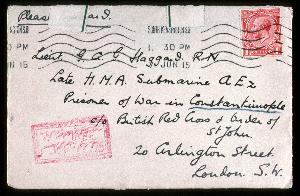 Please
Lieut G. A. G Haggard R.N
1. 30 PM
JUN 15
Late H.M.A. Submarine AE2
Prisoner of War in Constantinople
c/o British Red Cross & Order of
St John
20 Arlington Street
London. S.W.